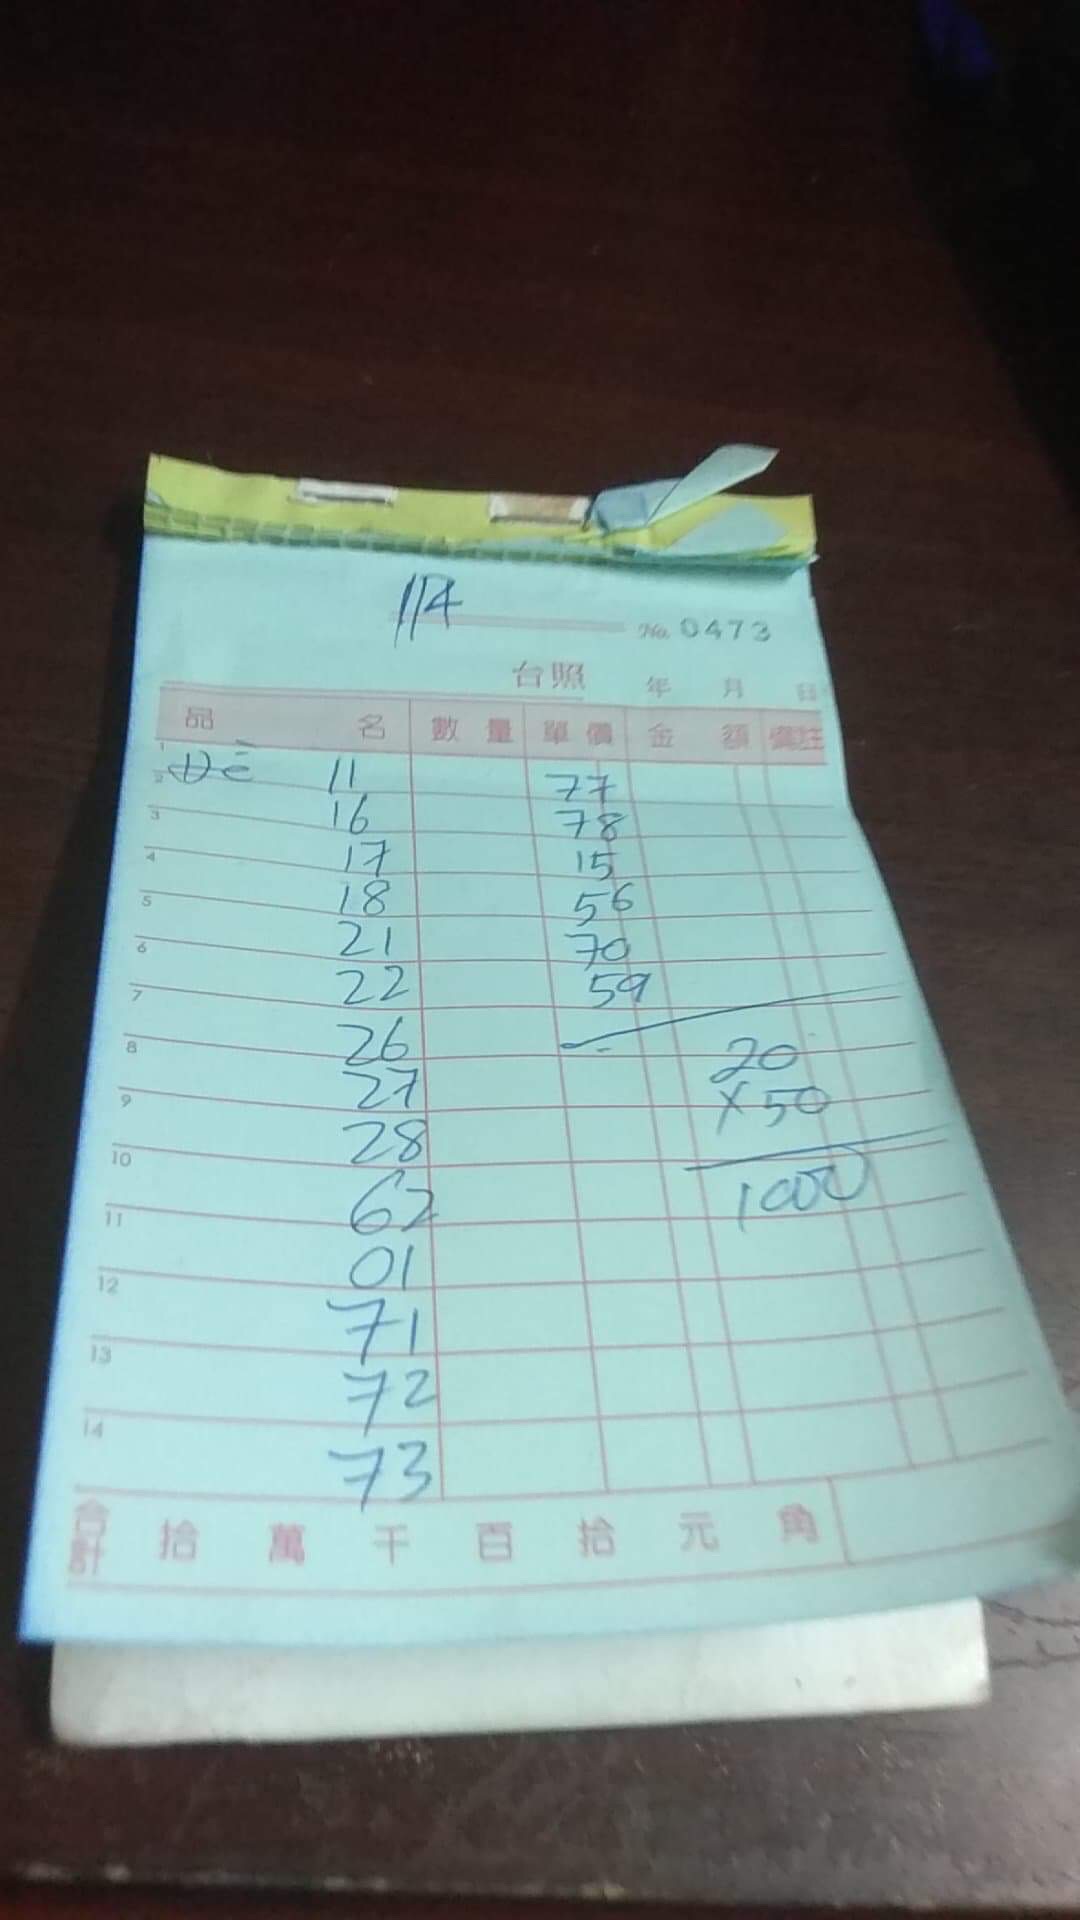 114
№ 0473
台照 年 月 日
品 名 數 量 單 價 金 額 備註
1
Đề 11 77
2
16 78
3
17 15
4
18 56
5
21 70
6
22 59
7
26
8
20
27
X 50
9
28
10
62 1000
11
01
12
71
13
72
14
73
合計 拾 萬 千 百 拾 元 角